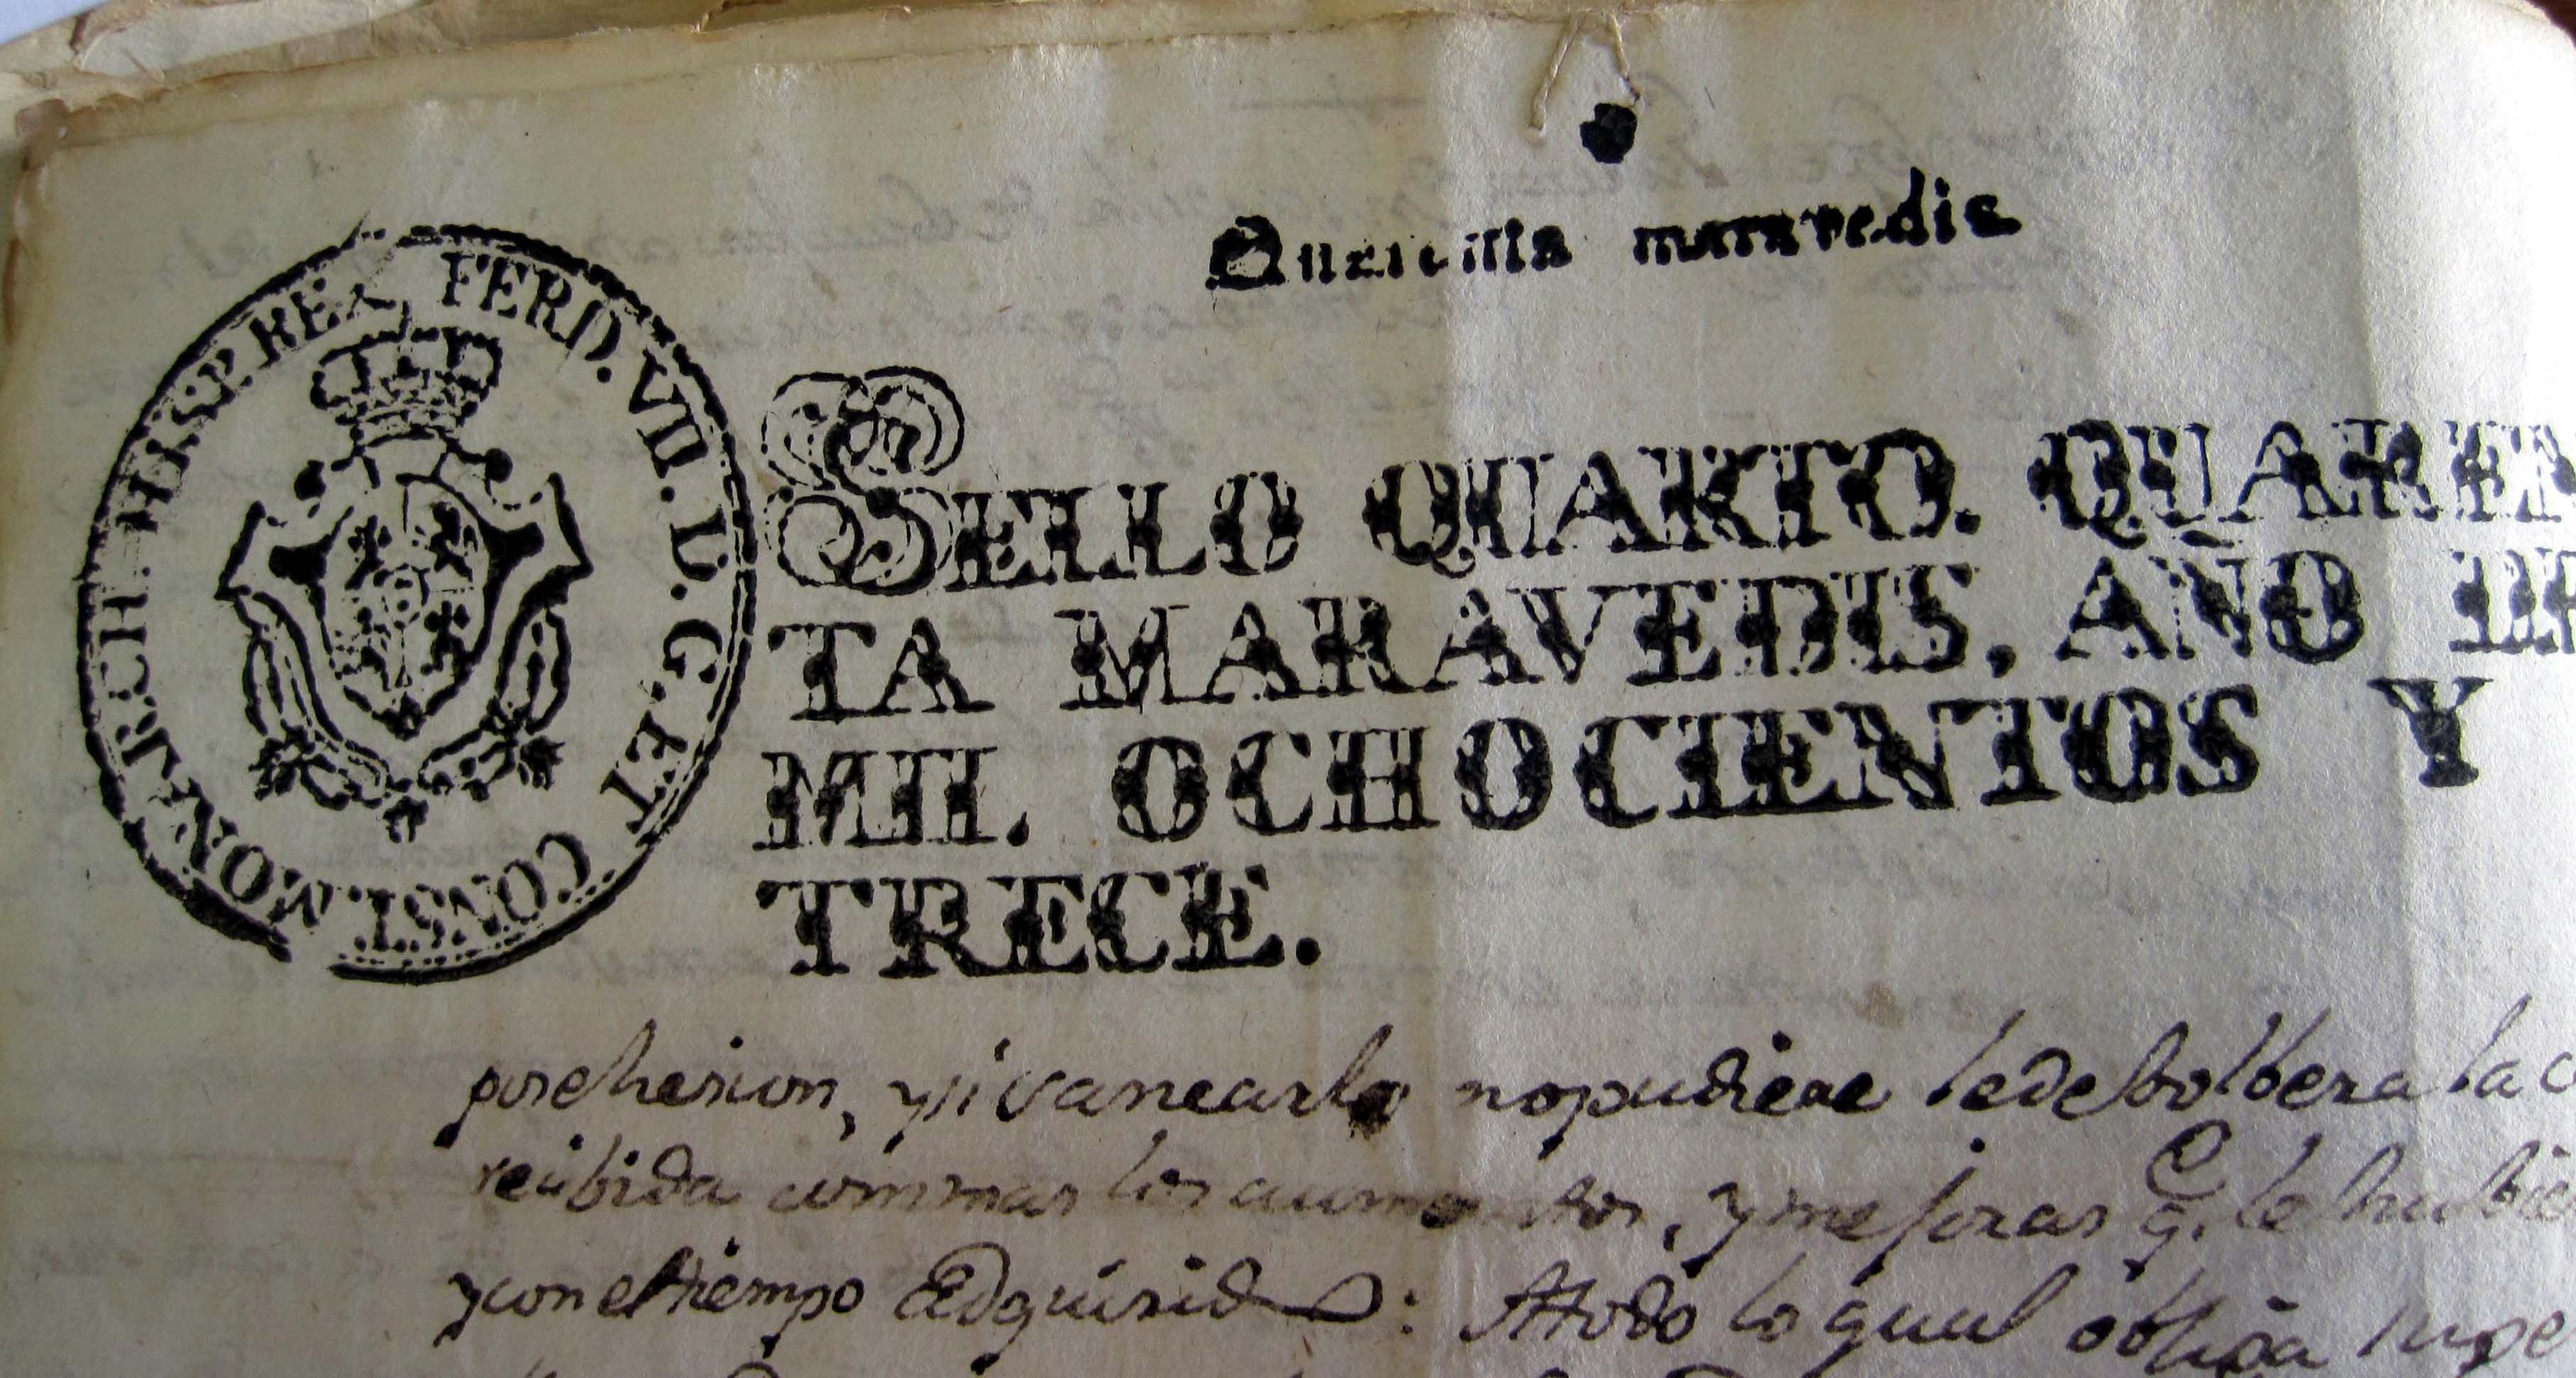 Quarenta maravedis
FERD. VII. D. G. ET CONST. MONARCH. HISP. REX
SELLO QUARTO. QUAREN
TA MARAVEDIS, AÑO DE
MIL OCHOCIENTOS Y
TRECE.
posehesion, ysi sanearla nopudiere ledebolbera la
recibida conmas los aumentos, ymejoras q.e le hubie
yconeltiempo Adquirido: Atodo loqual obliga supe